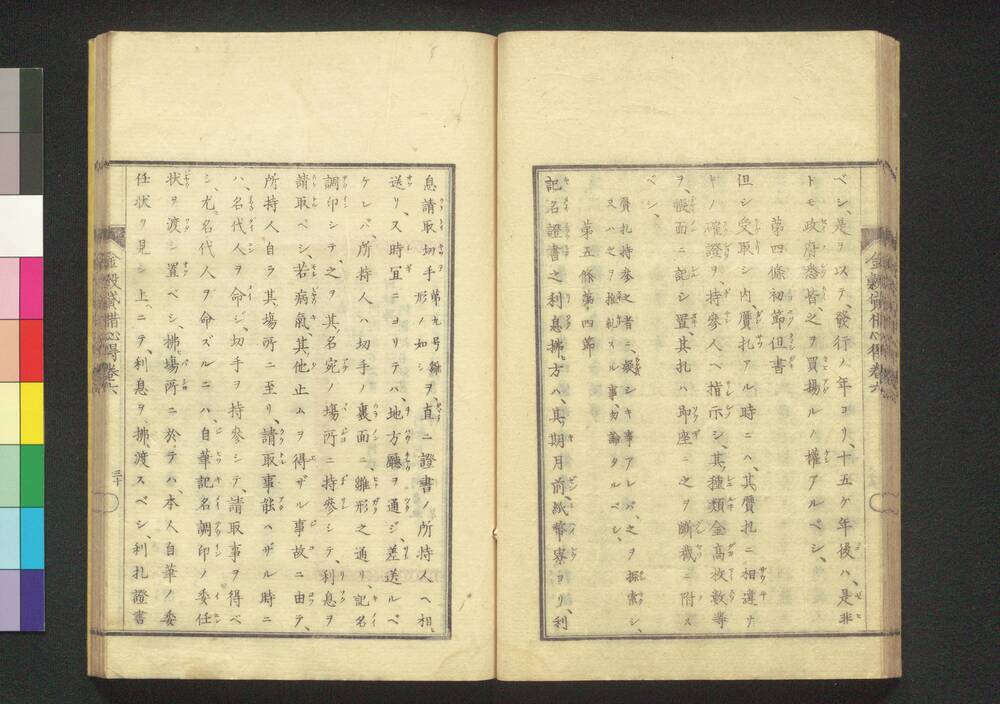 ベシ、是ヲ以テ、發行ノ年ヨリ、十五ケ年後ハ、是非
トモ政府悉皆、之ヲ買揚ルノ權アルベシ、
第四條初節但書
但シ受取シ内、贋札アル時ニハ、其贋札ニ相違ナ
キノ確證ヲ、持參人ヘ指示シ、其種類金高枚數等
ヲ、帳面ニ記シ置其札ハ即座ニ之ヲ斷截ニ附ス
ベシ、
贋札持參之者ニ、疑シキ事アレバ、之ヲ探索シ、
又ハ之ヲ推糺スル事勿論タルベシ、
第五條第四節
記名證書之利息拂方ハ、其期月前、紙幣寮ヨリ、利
息請取切手第九号雛形ノ如シヲ、直ニ證書ノ所持人ヘ相
送リ、又時宜ニヨリテハ、地方廳ヲ通ジ、差送ルベ
ケレバ、所持人ハ切手ノ裏面ニ、雛形之通リ、記名
調印シテ、之ヲ其名宛ノ塲所ニ持參シテ、利息ヲ
請取ベシ、若病氣、其他止ムヲ得ザル事故ニ由テ、
所持人自ラ其塲所ニ至リ、請取事能ハザル時ニ
ハ、名代人ヲ命ジ、切手ヲ持參シテ、請取事ヲ得ベ
シ、尤名代人ヲ命ズルニハ、自筆記名調印ノ委任
状ヲ渡シ置ベシ、拂塲所ニ於テハ、本人自筆ノ委
任状ヲ見シ上ニテ、利息ヲ拂渡スベシ、利札證書
金穀貸借心得卷六
三十